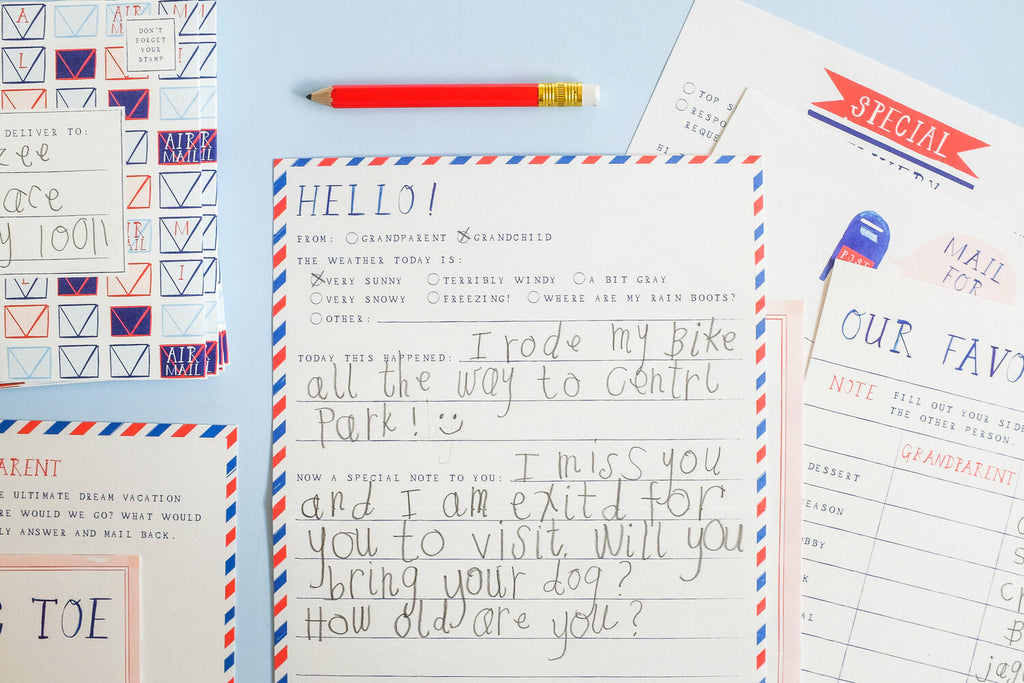 DON'T
FORGET
YOUR
STAMP
DELIVER TO:
zee
ace
y 10011
AIR
MAIL
AIR
MAIL
HELLO!
FROM: GRANDPARENT GRANDCHILD
THE WEATHER TODAY IS:
VERY SUNNY TERRIBLY WINDY A BIT GRAY
VERY SNOWY FREEZING! WHERE ARE MY RAIN BOOTS?
OTHER:
TODAY THIS HAPPENED: I rode my Bike
all the way to Centrl
Park! :)
NOW A SPECIAL NOTE TO YOU: I miss you
and I am exitd for
you to visit. Will you
bring your dog?
How old are you?
ARENT
E ULTIMATE DREAM VACATION
RE WOULD WE GO? WHAT WOULD
LY ANSWER AND MAIL BACK.
TOE
TOP S
RESPO
REQUE
SPECIAL
POST
MAIL
FOR
OUR FAVO
NOTE FILL OUT YOUR SIDE
THE OTHER PERSON.
GRANDPARENT
DESSERT
EASON
OBBY